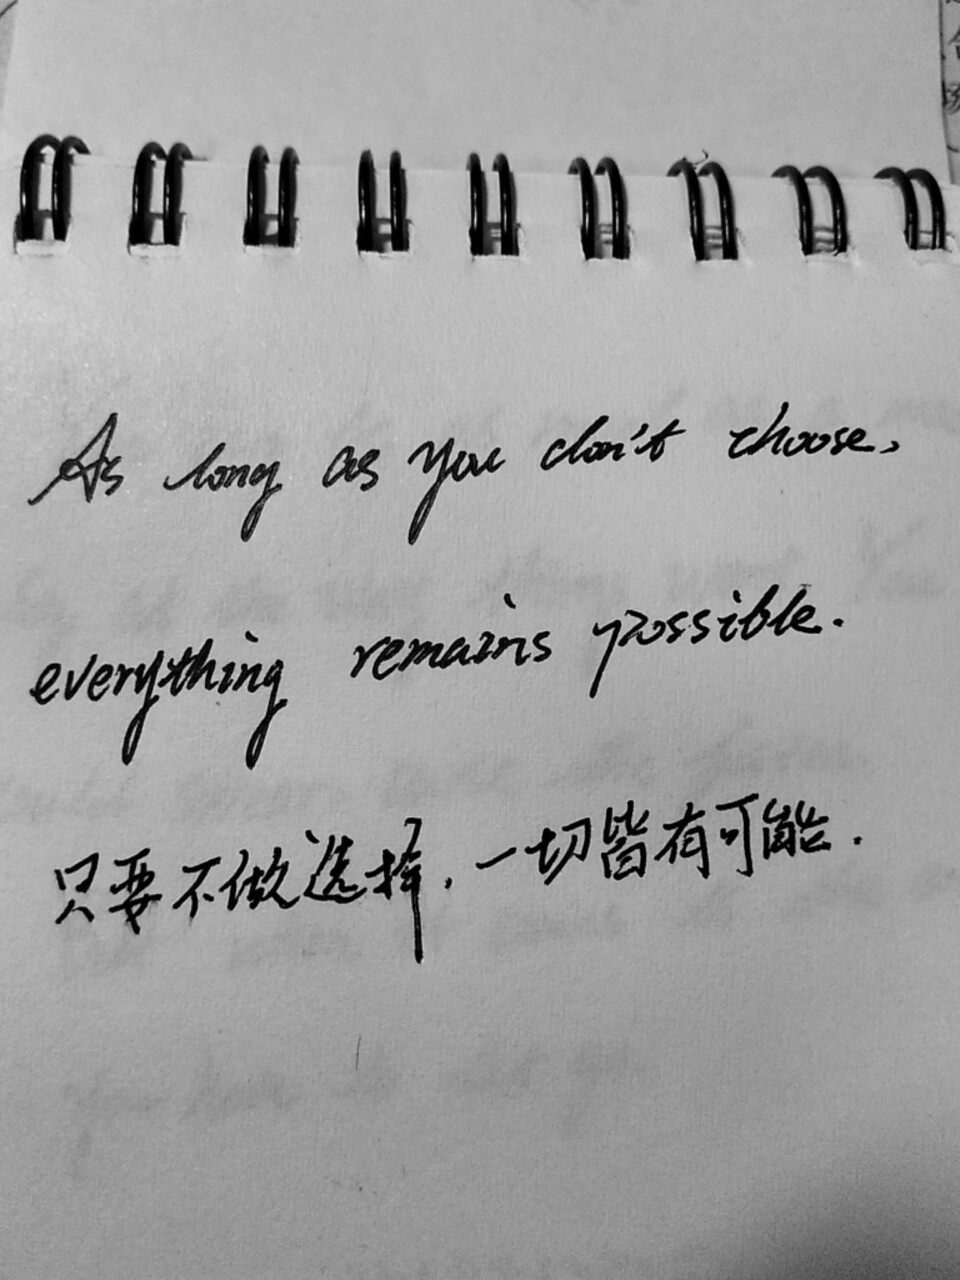 As long as you don't choose,
everything remains possible.
只要不做选择.一切皆有可能.